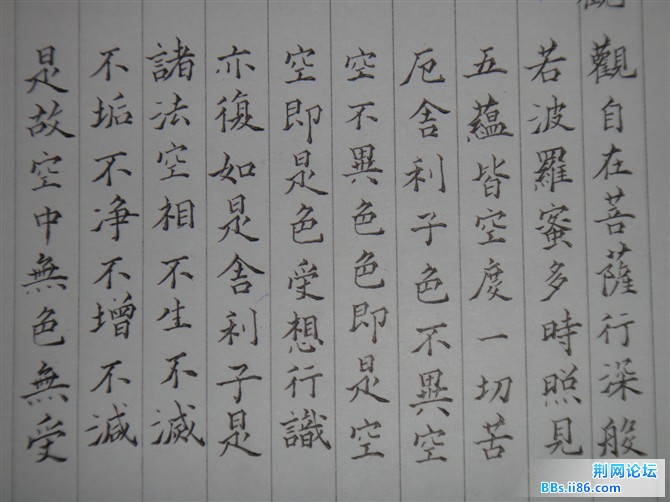 觀自在菩薩行深般
若波羅蜜多時照見
五蘊皆空度一切苦
厄舍利子色不異空
空不異色色即是空
空即是色受想行識
亦復如是舍利子是
諸法空相不生不滅
不垢不净不增不減
是故空中無色無受
荆网论坛
BBs.ii86.com